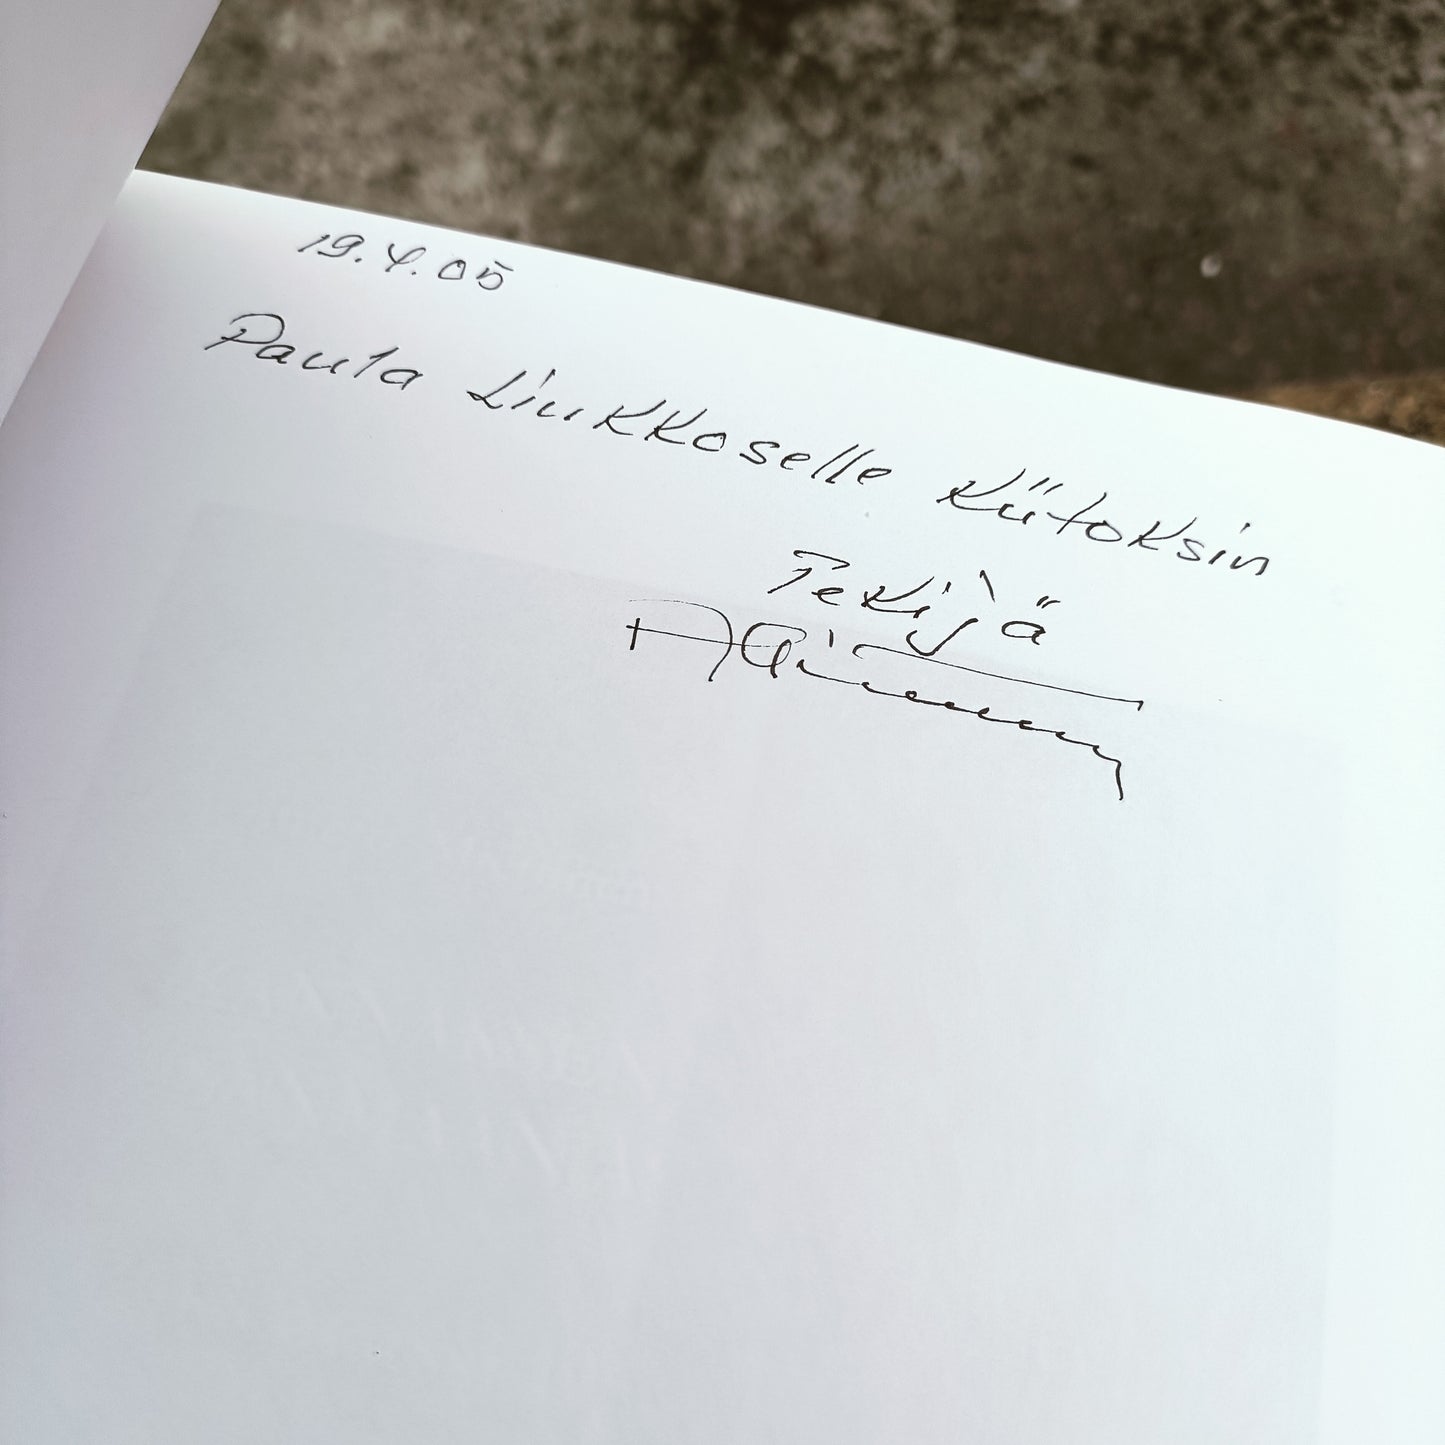 19.4.05
Paula Liukkoselle Kiitoksin
Tekijä